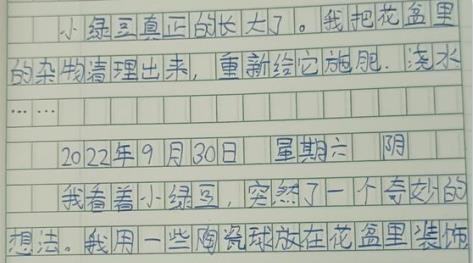 小绿豆真正的长大了。我把花盆里
的杂物清理出来，重新给它施肥．浇水
……
2022年9月30日 星期六 阴
我看着小绿豆，突然了一个奇妙的
想法。我用一些陶瓷球放在花盆里装饰